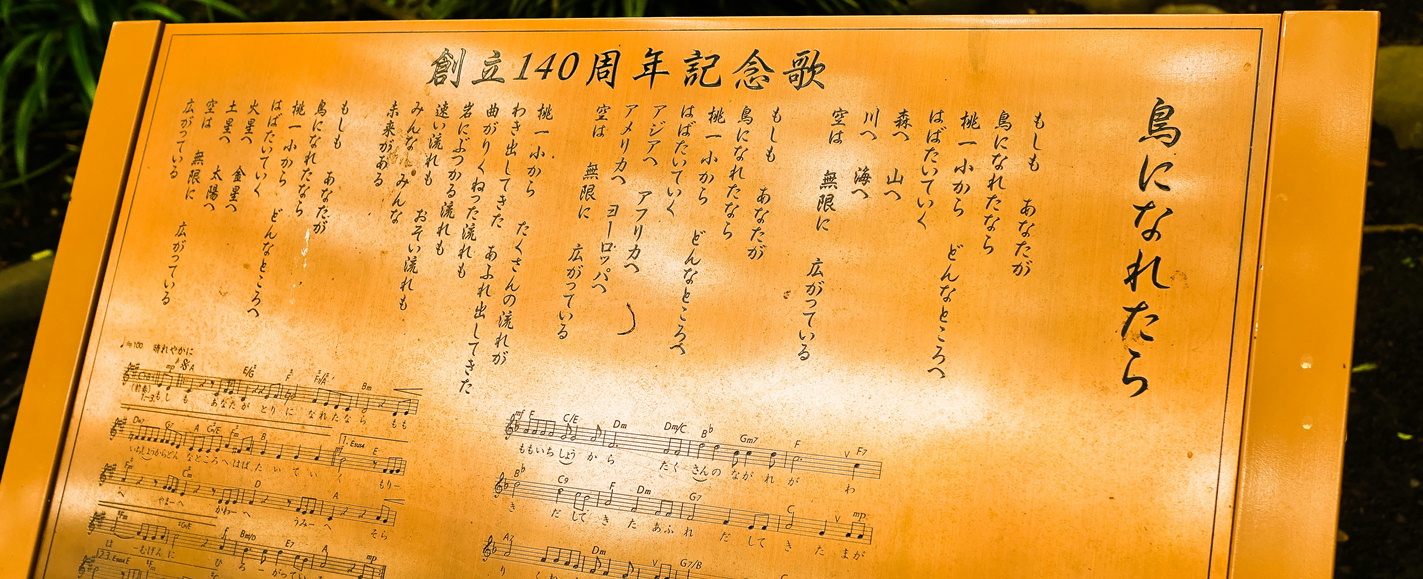 創立140周年記念歌
鳥になれたら
もしも あなたが
鳥になれたなら
桃一小から どんなところへ
はばたいていく
森へ 山へ
川へ 海へ
空は 無限に 広がっている
もしも あなたが
鳥になれたなら
桃一小から どんなところへ
はばたいていく
アジアへ アフリカへ
アメリカへ ヨーロッパへ
空は 無限に 広がっている
桃一小から たくさんの流れが
わき出してきた あふれ出してきた
曲がりくねった流れも
岩にぶつかる流れも
速い流れも おそい流れも
みんな みんな
未来がある
もしも あなたが
鳥になれたなら
桃一小から どんなところへ
はばたいていく
火星へ 金星へ
土星へ 太陽へ
空は 無限に
広がっている 広がっている
♩=100 晴れやかに
もしも あなたが とりに なれたなら もも
いちしょうからどん なところへはばたいていく もり―
へ やまーへ かわーへ うみーへ そら
は ―むげんに ひろ―がってい
mf E C/E Dm Dm/C B♭ Gm7 F F7
ももいちしょう から たくさんの ながれが わ
B♭ C9 F Dm G7 C mp
き だしてきた あふれ だしてきた まが
A7 Dm G7/B